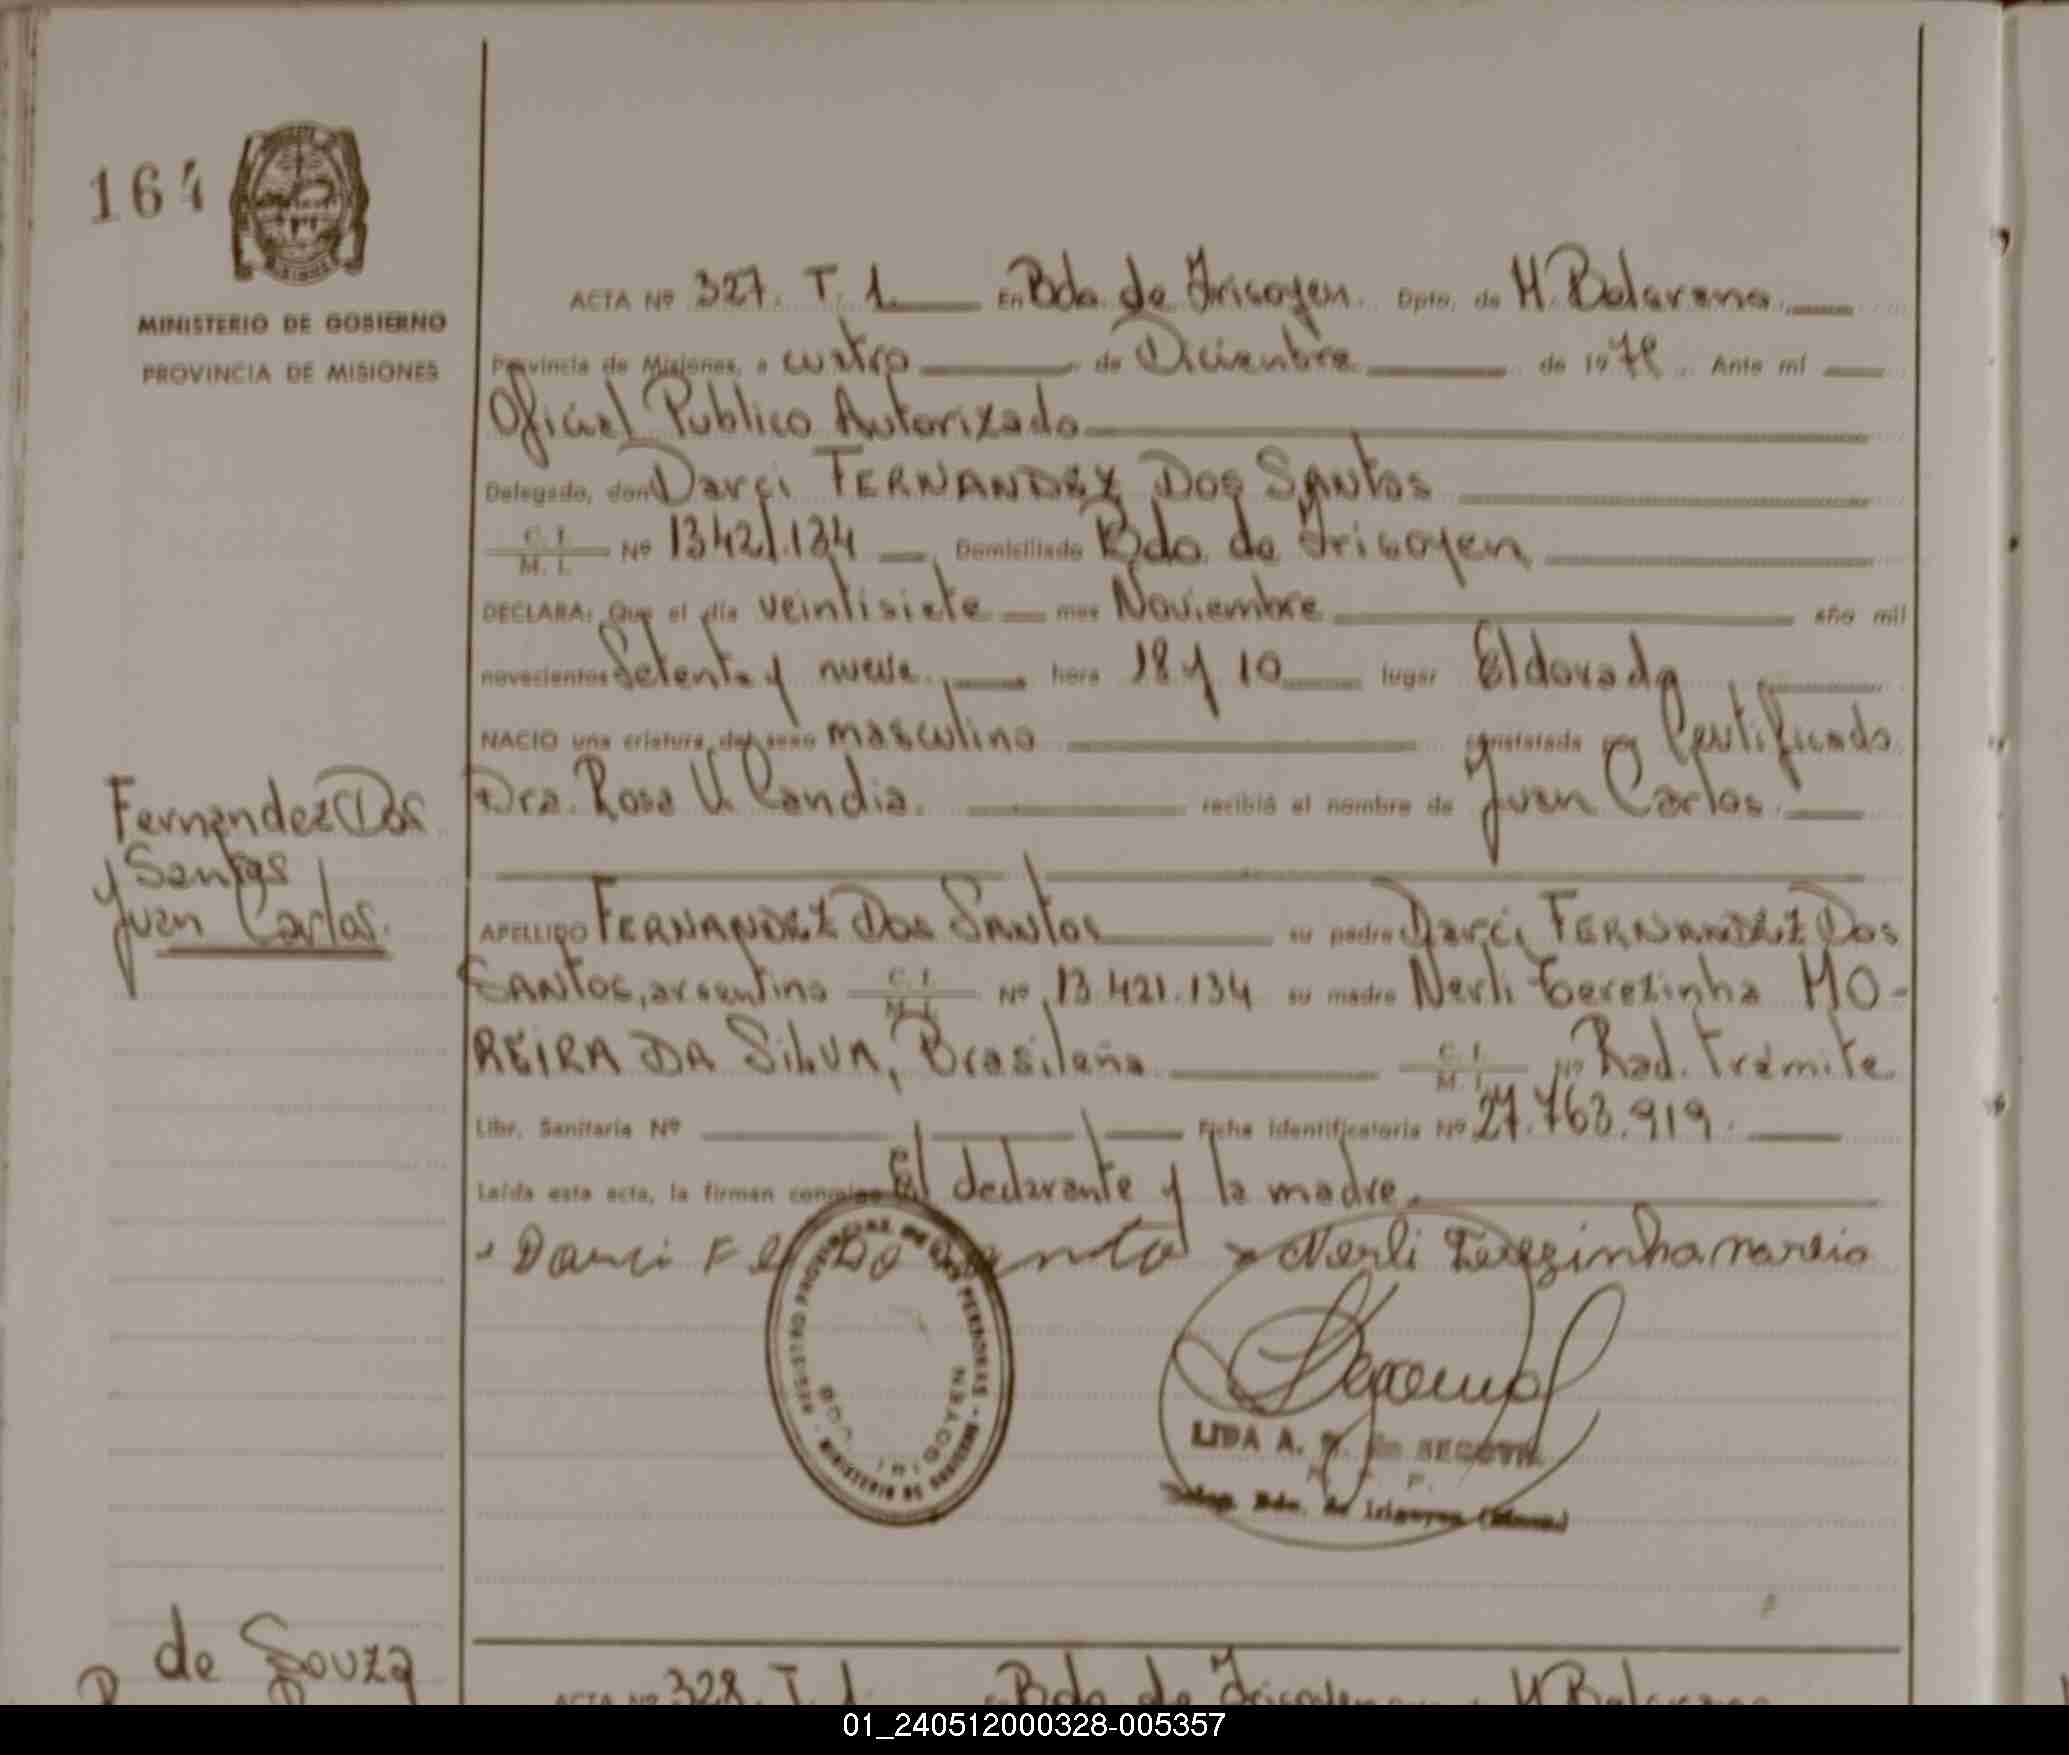 164
MINISTERIO DE GOBIERNO
PROVINCIA DE MISIONES
ACTA Nº 327. T. 1. En Bdo. de Irigoyen. Dpto. de M. Belgrano
Provincia de Misiones, a cuatro de Diciembre de 1979. Ante mí
Oficial Publico Autorizado
Delegado, don Darci FERNANDEZ Dos SANtos
C. I. / M. I. Nº 13421.134 Domiciliado Bdo. de Irigoyen
DECLARA: Que el día veintisiete mes Noviembre año mil
novecientos Setenta y nueve. hora 18 y 10 lugar Eldorado
NACIO una criatura del sexo masculino constatado por Certificado
Dra. Rosa V. Candia. recibió el nombre de Juan Carlos.
Fernandez Dos
Santos
Juan Carlos.
APELLIDO FERNANDEZ Dos SANtos su padre Darci FERNANDEZ Dos
SANTos, argentino C. I. / M. I. Nº 13.421.134 su madre Nerli terezinha MO-
REIRA DA SILVA, Brasileña C. I. / M. I. Nº Rad. tramite.
Libr. Sanitaria Nº Ficha Identificatoria Nº 27.763.919.
Leída esta acta, la firman conmigo El declarante y la madre.
Darci Fe Do Nerli Terezinha moreira
REGISTRO PROVINCIAL DE LAS PERSONAS - MISIONES - MINISTERIO DE
BDO. IRIGOYEN
LIDA A. de SEGOVIA
Bdo. de Irigoyen (Mnes.)
de Souza
ACTA Nº 328. T. 1. En Bdo. de Irigoyen M Belgrano
01_240512000328-005357